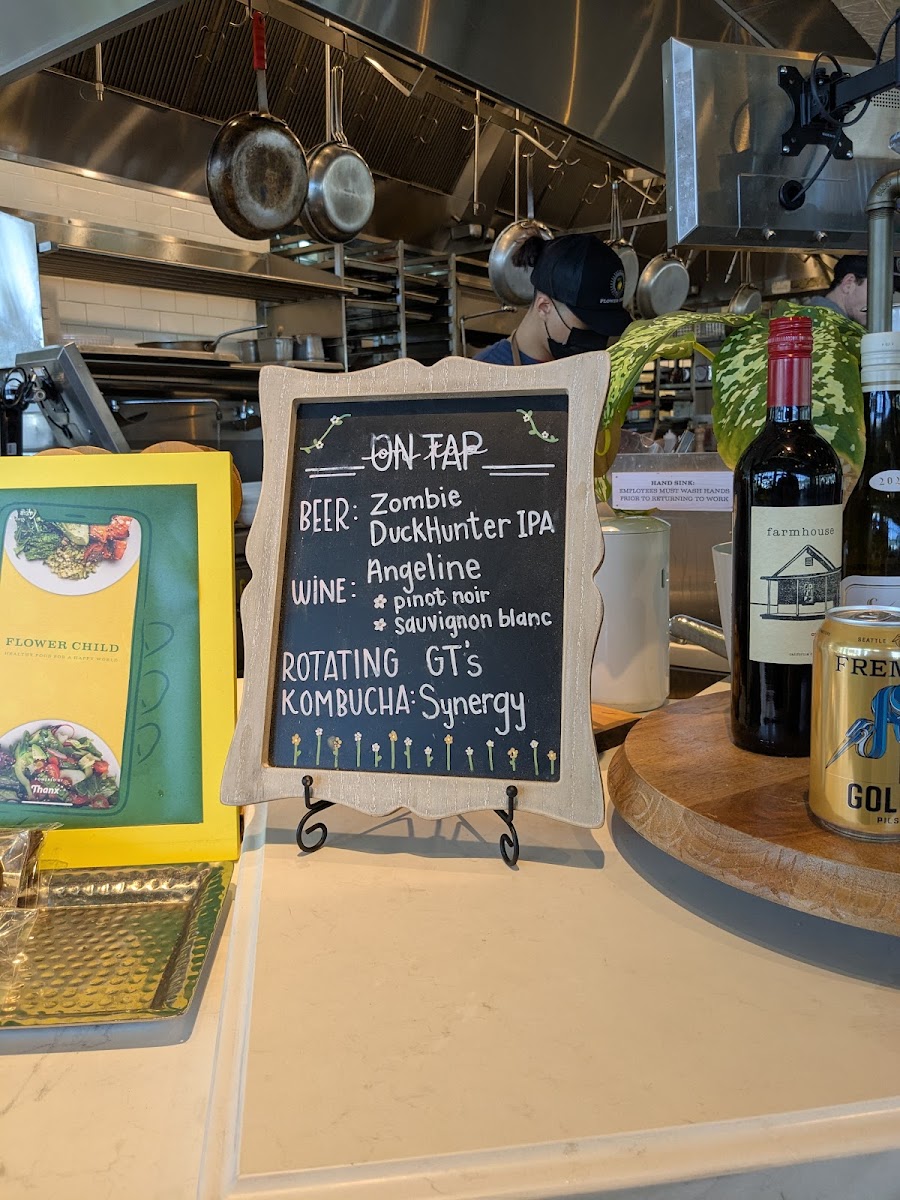 ON TAP
BEER: Zombie
DuckHunter IPA
WINE: Angeline
pinot noir
sauvignon blanc
ROTATING GT's
KOMBUCHA: Synergy
FLOWER CHILD
HEALTHY FOOD FOR A HAPPY WORLD
Thanx
HAND SINK:
EMPLOYEES MUST WASH HANDS
PRIOR TO RETURNING TO WORK
farmhouse
SEATTLE
FREM
GOL
PILS
202